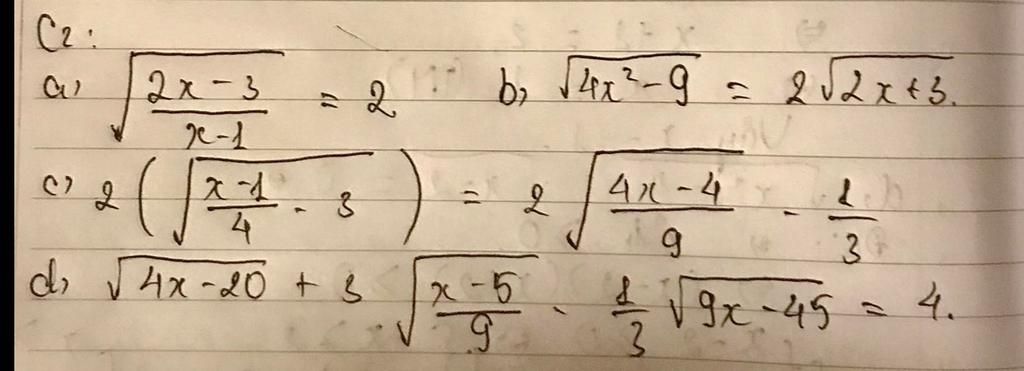 C2:
a, √((2x - 3)/(x - 1)) = 2 b, √(4x² - 9) = 2√(2x + 3).
c, 2(√((x - 1)/4 - 3)) = 2√((4x - 4)/9) - 1/3
d, √(4x - 20) + 3√((x - 5)/9) - 1/3 √(9x - 45) = 4.